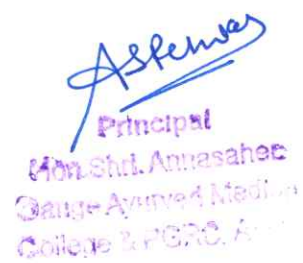 Principal
Hon. Shri. Annasaheb
Dange Ayurved Medical
College & PGRC, A